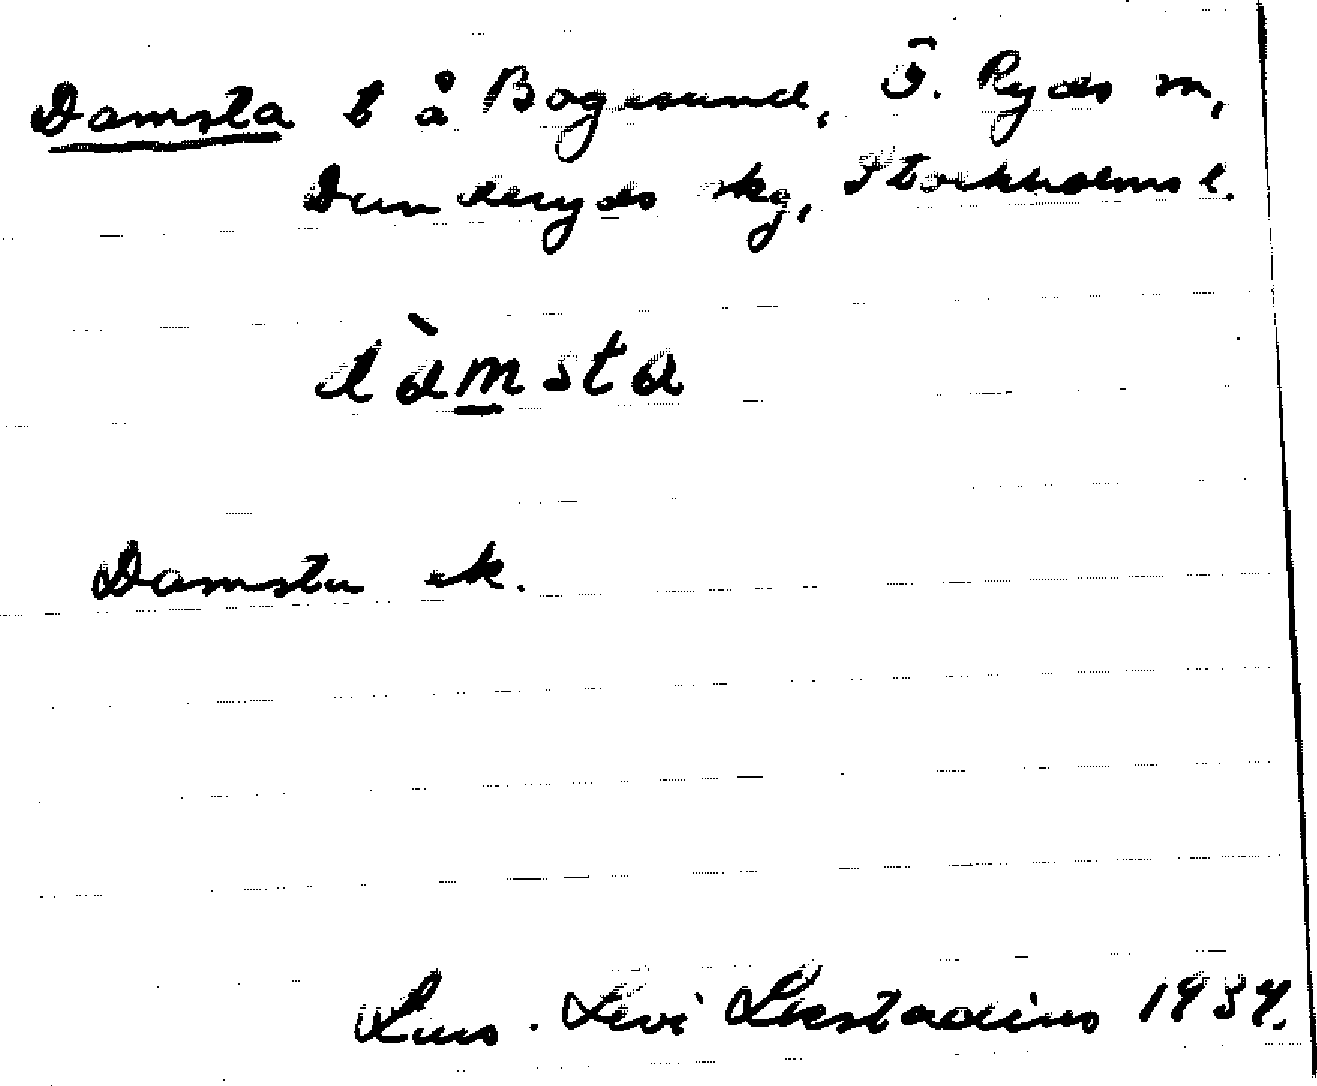 Damsta b å Bogesund, Ö. Ryds sn,
Danderyds skg, Stockholms l.
dàmsta
Damsta ek.
Lars-Levi Læstadius 1934.